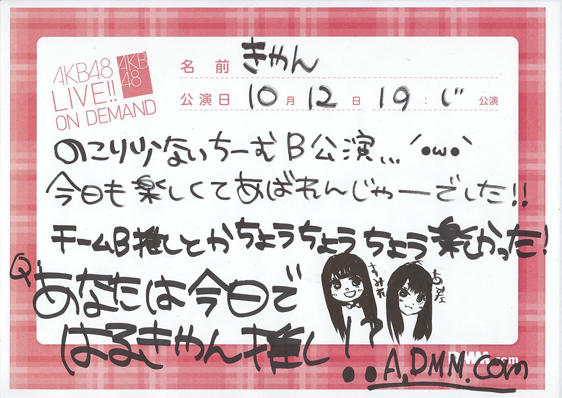 AKB48
LIVE!!
ON DEMAND
AKB
48
名前 きゃん
公演日 10月12日 19:じ 公演
のこり少ないちーむB公演… ´•ω•`
今日も楽しくてあばれんじゃーでした!!
チームB推しとかちょうちょうちょう楽しかった!
Q あなたは今日で
はるきゃん推し!?
A.DMM.com